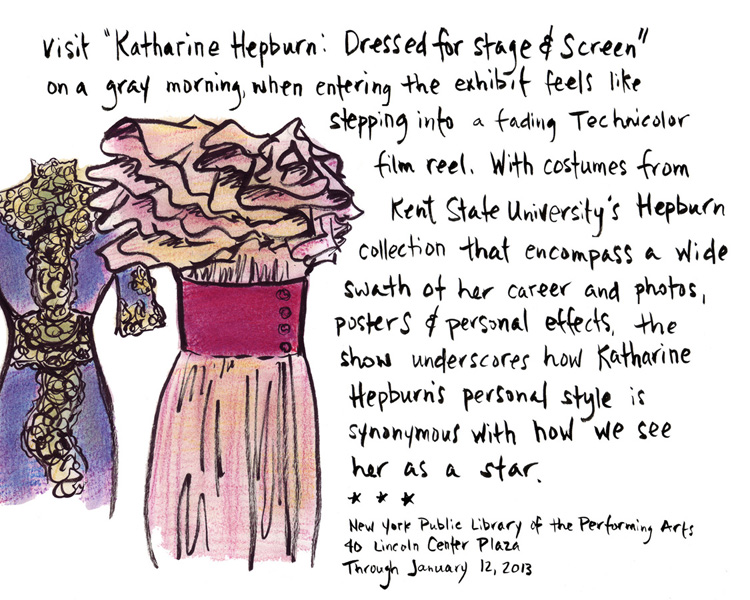 Visit "Katharine Hepburn: Dressed for Stage & Screen"
on a gray morning, when entering the exhibit feels like
stepping into a fading Technicolor
film reel. With costumes from
Kent State University's Hepburn
collection that encompass a wide
swath of her career and photos,
posters & personal effects, the
show underscores how Katharine
Hepburn's personal style is
synonymous with how we see
her as a star.
* * *
New York Public Library of the Performing Arts
40 Lincoln Center Plaza
Through January 12, 2013